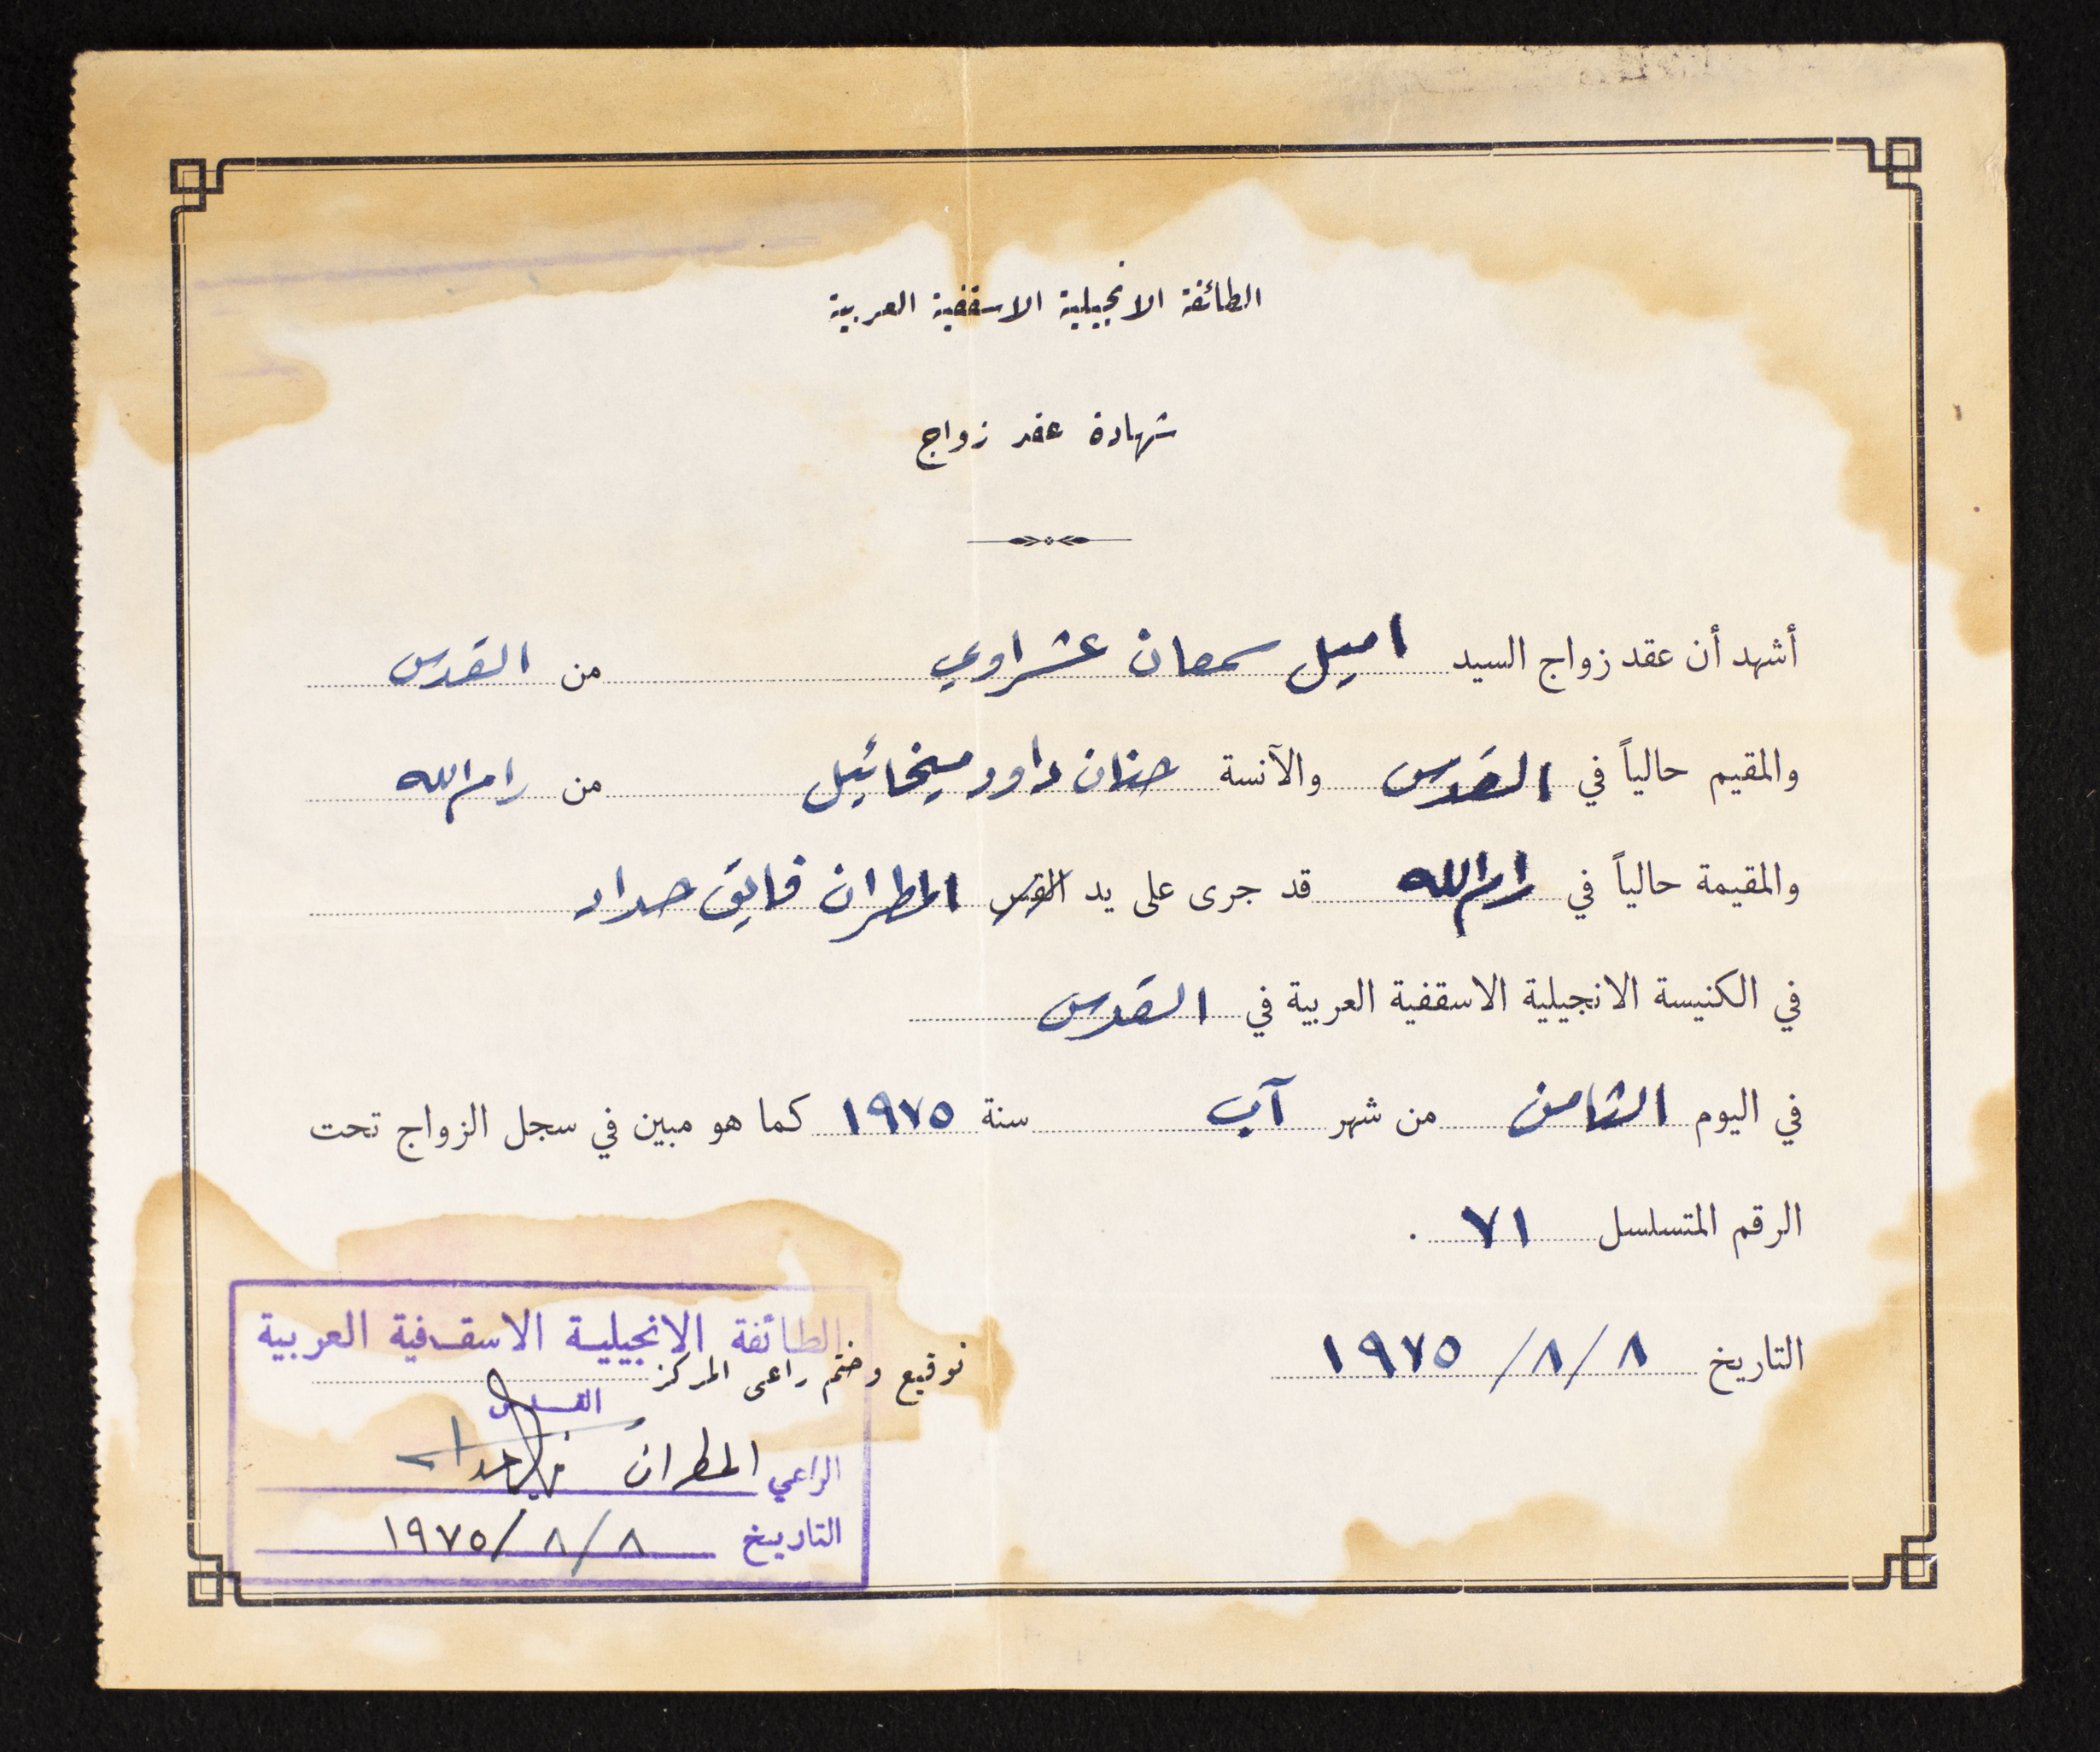 الطائفة الانجيلية الاسقفية العربية
شهادة عقد زواج
أشهد أن عقد زواج السيد اميل سمعان عشراوي من القدس
والمقيم حالياً في القدس والآنسة حنان داود ميخائيل من رام الله
والمقيمة حالياً في رام الله قد جرى على يد القس المطران فايق حداد
في الكنيسة الانجيلية الاسقفية العربية في القدس
في اليوم الثامن من شهر آب سنة ١٩٧٥ كما هو مبين في سجل الزواج تحت
الرقم المتسلسل ٧١ .
التاريخ ٨/٨/١٩٧٥
توقيع وختم راعى المركز
الطائفة الانجيلية الاسقفية العربية
القدس
الراعي المطران فايق حداد
التاريخ ٨/٨/١٩٧٥